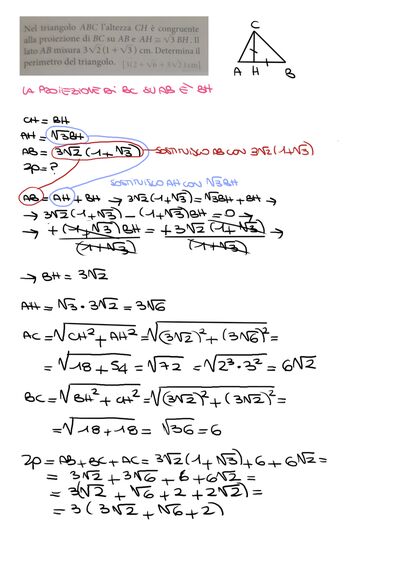 Nel triangolo ABC l'altezza CH è congruente
alla proiezione di BC su AB e AH = √3 BH. Il
lato AB misura 3√2(1 + √3) cm. Determina il
perimetro del triangolo. [3(2 + √6 + 3√2) cm]
C
A H B
LA PROIEZIONE DI BC SU AB È BH
CH = BH
AH = √3BH
AB = 3√2(1+√3) SOSTITUISCO AB CON 3√2(1+√3)
2p = ?
SOSTITUISCO AH CON √3BH
AB = AH + BH → 3√2(1+√3) = √3BH + BH →
→ 3√2(1+√3) - (1+√3)BH = 0 →
→ +(1+√3)BH/(1+√3) = +3√2(1+√3)/(1+√3) →
→ BH = 3√2
AH = √3 · 3√2 = 3√6
AC = √CH² + AH² = √(3√2)² + (3√6)² =
= √18 + 54 = √72 = √2³·3² = 6√2
BC = √BH² + CH² = √(3√2)² + (3√2)² =
= √18 + 18 = √36 = 6
2p = AB + BC + AC = 3√2(1+√3) + 6 + 6√2 =
= 3√2 + 3√6 + 6 + 6√2 =
= 3(√2 + √6 + 2 + 2√2) =
= 3(3√2 + √6 + 2)